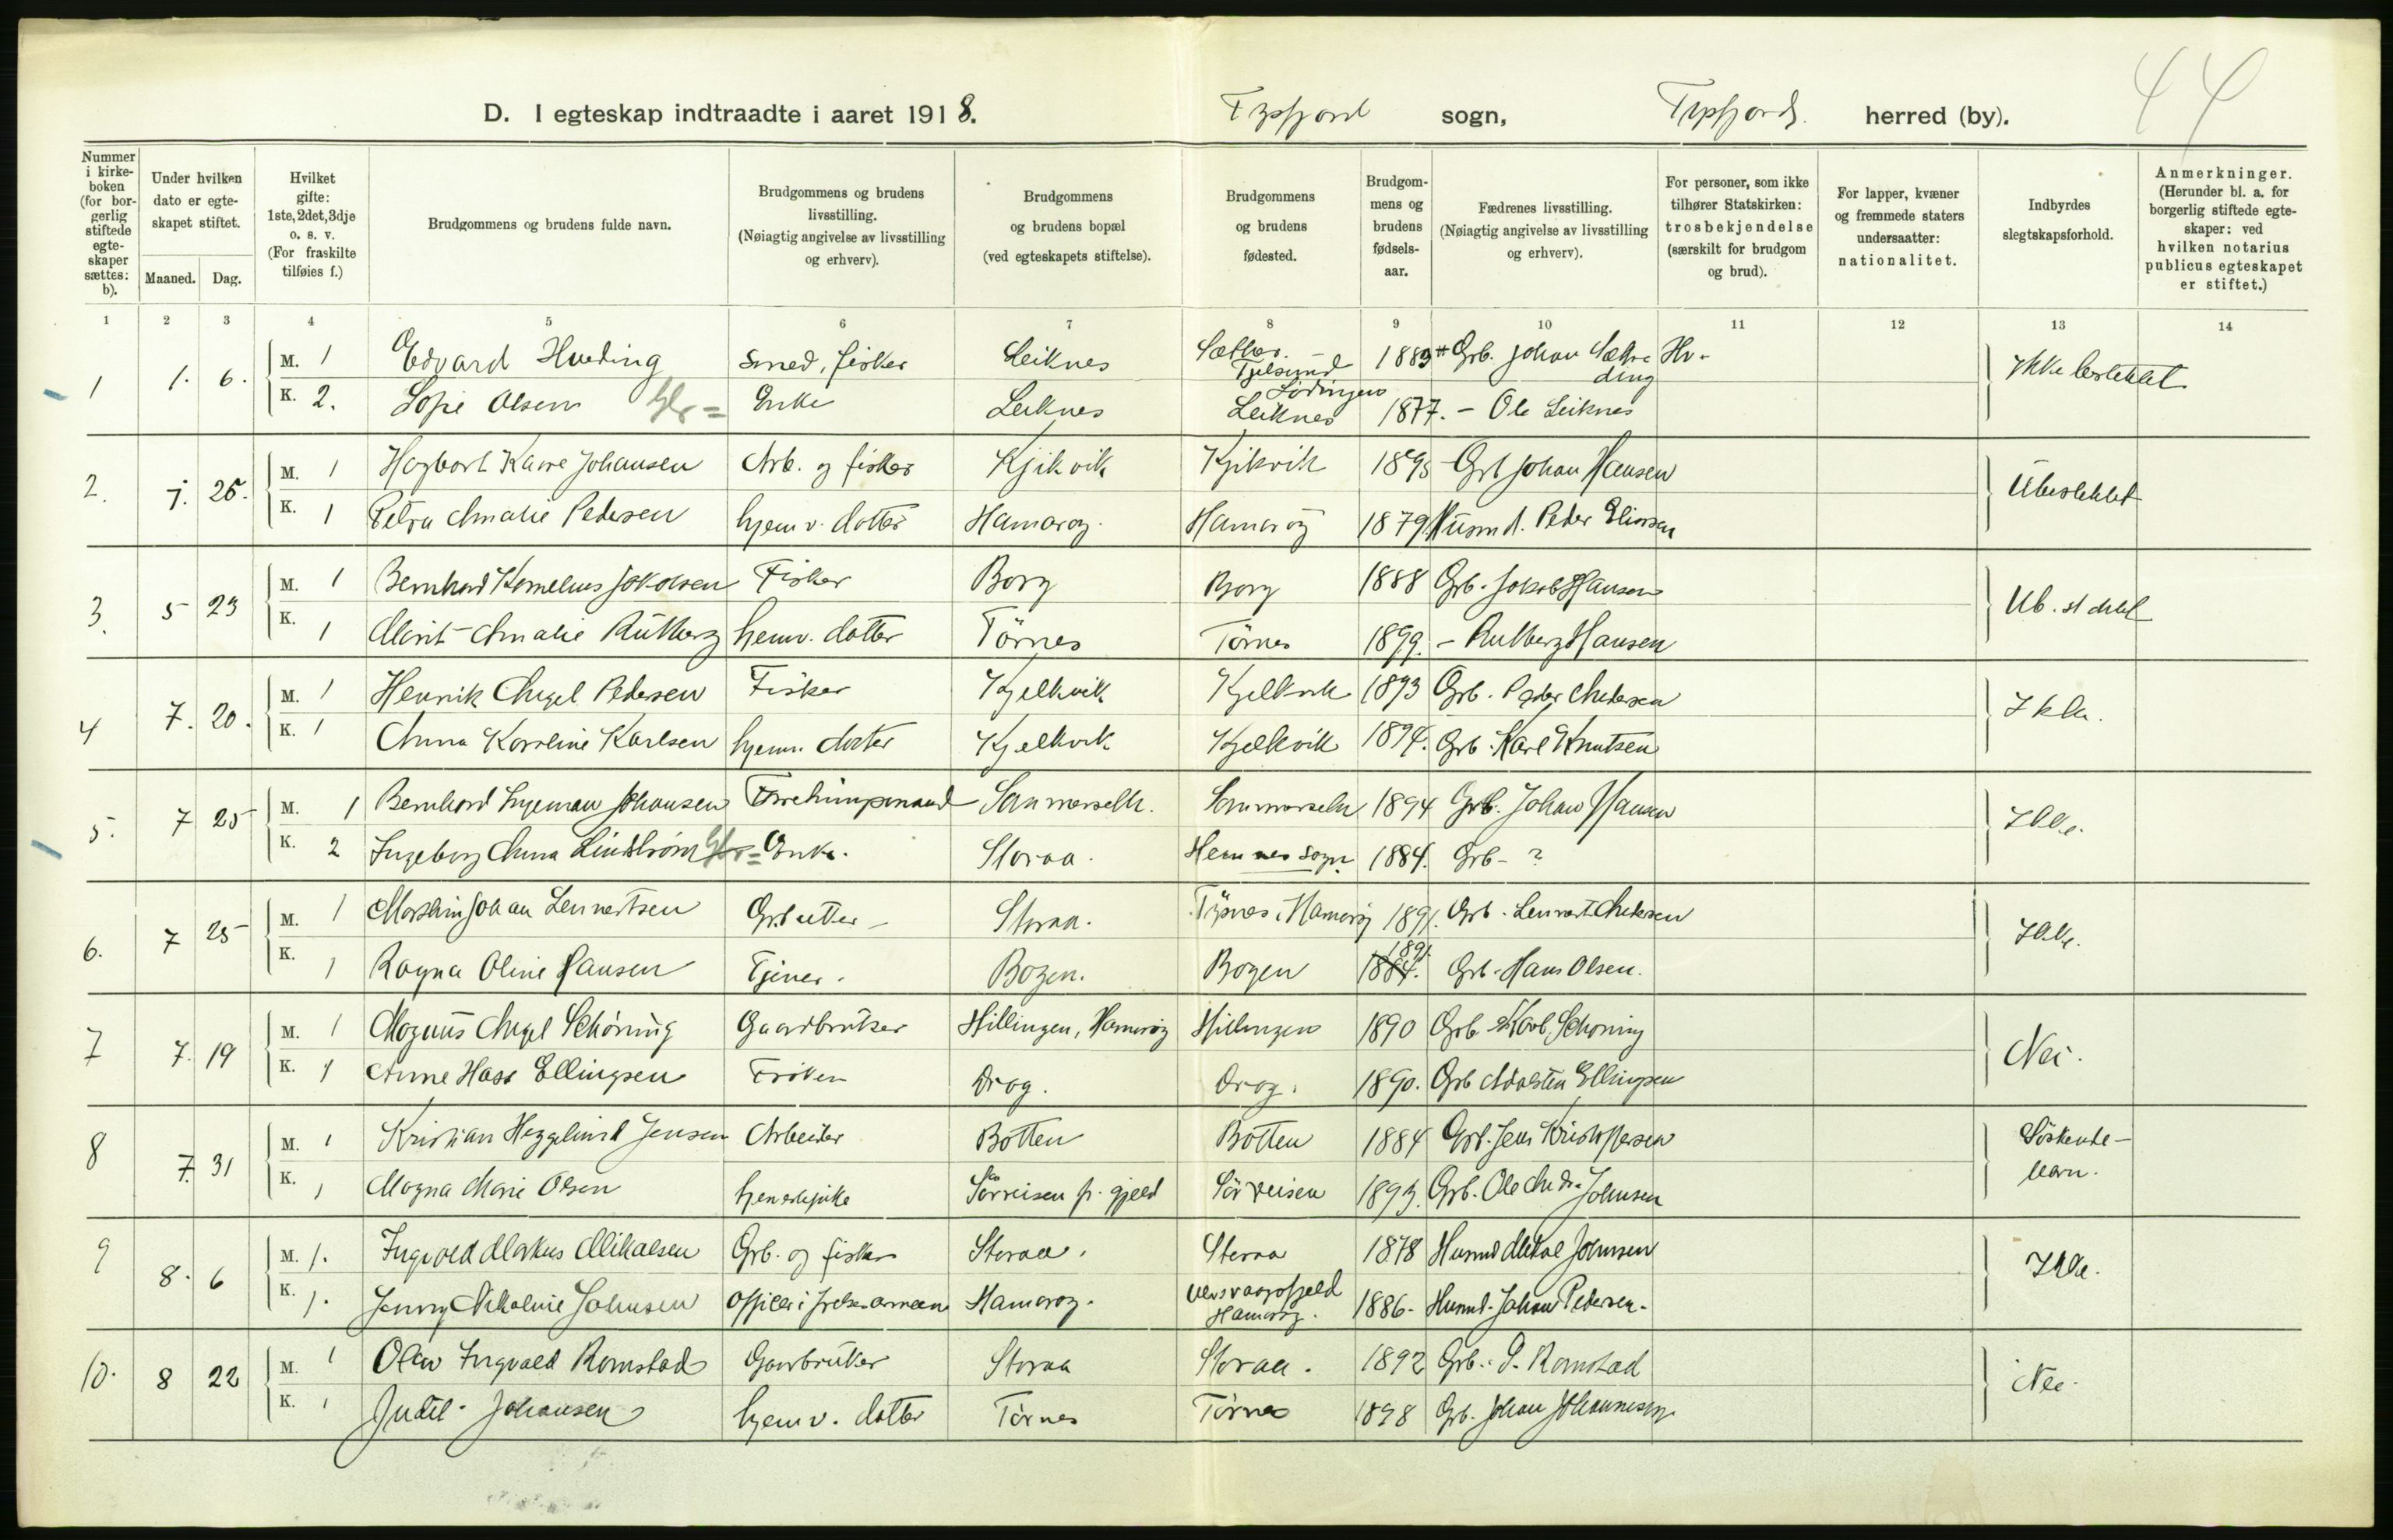 44
D. I egteskap indtraadte i aaret 1918. Tysfjord sogn, Tysfjord herred (by).
Nummer i kirkeboken (for borgerlig stiftede egteskaper sættes: b).
Under hvilken dato er egteskapet stiftet.
Maaned. Dag.
Hvilket gifte: 1ste, 2det, 3dje o. s. v. (For fraskilte tilføies f.)
Brudgommens og brudens fulde navn.
Brudgommens og brudens livsstilling. (Nøiagtig angivelse av livsstilling og erhverv).
Brudgommens og brudens bopæl (ved egteskapets stiftelse).
Brudgommens og brudens fødested.
Brudgommens og brudens fødselsaar.
Fædrenes livsstilling. (Nøiagtig angivelse av livsstilling og erhverv).
For personer, som ikke tilhører Statskirken: trosbekjendelse (særskilt for brudgom og brud).
For lapper, kvæner og fremmede staters undersaatter: nationalitet.
Indbyrdes slegtskapsforhold.
Anmerkninger. (Herunder bl. a. for borgerlig stiftede egteskaper: ved hvilken notarius publicus egteskapet er stiftet.)
1 2 3 4 5 6 7 8 9 10 11 12 13 14
1 1. 6. M. 1 Edvard Hveding smed, fisker Leiknes Sæther. Tjelsund Lødingen 1889 Grb. Johan Sæthre Hveding Ikke beslektet
K. 2. Sofie Olsen Enke Leiknes Leiknes 1877. - Ole Leiknes
2. 25. M. 1 Hagbart Kaare Johansen Arb. og fisker Kjikvik Kjikvik 1895 Grb Johan Hansen Ubeslektet
K. 1 Petra Amalie Pedersen hjemv. datter Hamarøy. Hamarøy 1879 Husmd. Peder Eliassen
3. 5 23 M. 1 Bernhard Kornelius Jakobsen Fisker Borg Borg 1888 Grb. Jakob Hansen
K. 1 Marit Amalie Rutberg hjemv. datter Törnes Törnes 1899. - Rutberg Hansen
4 7. 20. M. 1 Henrik Angel Pedersen Fisker Kjelkvik Kjelkvik 1893 Grb. Peder Andersen Ikke.
K. 1 Anna Karoline Karlsen hjemv. datter Kjelkvik Kjelkvik 1894. Grb. Karl Knutsen
5. 7 25 M. 1 Bernhard Ingeman Johansen Sommerseth. 1894 Grb. Johan Hansen Ikke.
K. 2 Ingeborg Anna Lindström Enke. Storaa. Hemnes sogn. 1884. Grb- ?
6. 7 25 M. 1 Johan Lennertsen Storaa. Hamarøy 1891. Grb. Lennert Andersen Ikke.
K. 1 Ragna Oline Hansen Tjener. Bogen. Bogen 1884. 1891 Grb. Hans Olsen.
7 7. 19 M. 1 Magnus Angel Schöning Gaardbruker Hillingen, Hamarøy Hillingen 1890 Grb. Schöning Nei.
K. 1 Anne Hass Ellingsen Fröken Drag. Drag. 1890. Grb Adolsten Ellingsen
8 7. 31 M. 1 Kristian Heggelund Jensen Arbeider Botten Botten 1884 Grb. Jens Kristoffersen Söskende-barn.
K. 1 Magna Marie Olsen Sörreisen p. gjeld Sörreisen 1893. Grb. Ole Andr. Johnsen
9 8. 6 M. 1. Ingvald Markus Mikalsen Grb. og fisker Storaa. Storaa 1878 Husmd Mikal Johnsen Ikke.
K. 1. Jenny Nikoline Johnsen Officer i frelsesarmeen Hamarøy. Ulvsvaagsfjeld Hamarøy. 1886. Husmd. Johan Pedersen.
10. 8 22 M. 1 Olav Ingvald Romstad Gaarbruker Storaa Storaa. 1892 Grb. P. Romstad Nei.
K. 1 Judit Johansen hjemv. datter Törnes Törnes 1898 Grb. Johan Johannesen